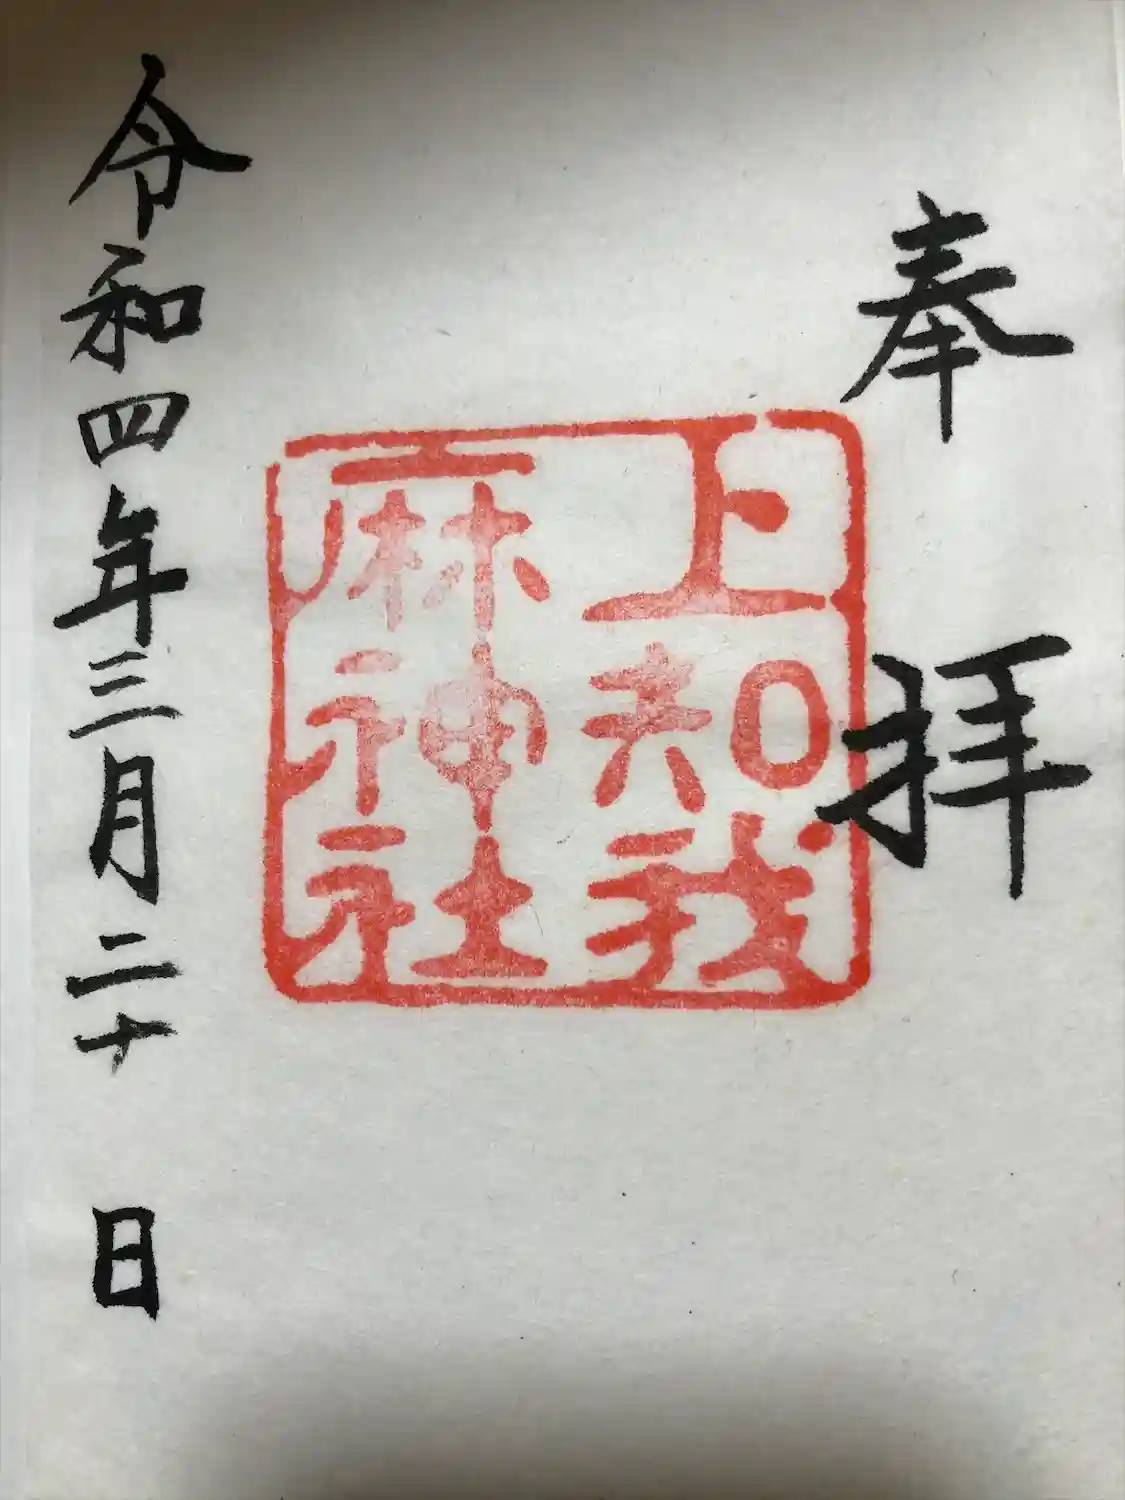 奉拝
上知我
麻神社
令和四年三月二十日